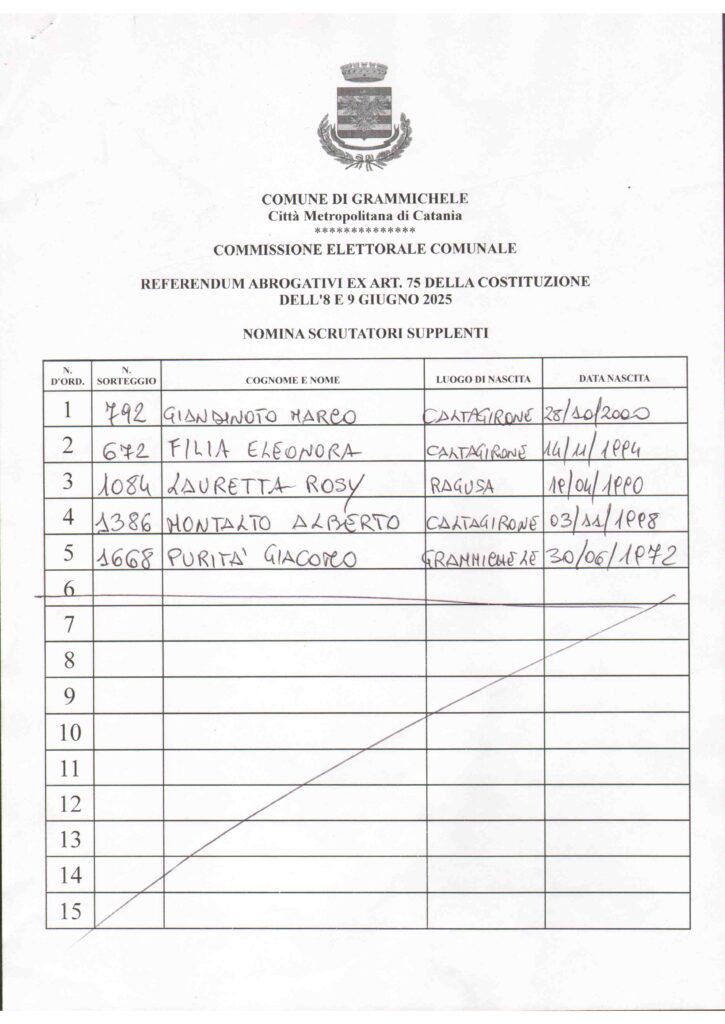 COMUNE DI GRAMMICHELE
Città Metropolitana di Catania
**************
COMMISSIONE ELETTORALE COMUNALE
REFERENDUM ABROGATIVI EX ART. 75 DELLA COSTITUZIONE
DELL'8 E 9 GIUGNO 2025
NOMINA SCRUTATORI SUPPLENTI
N. D'ORD. N. SORTEGGIO COGNOME E NOME LUOGO DI NASCITA DATA NASCITA
1 792 GIANDINOTO MARCO CALTAGIRONE 28/10/2000
2 672 FILIA ELEONORA CALTAGIRONE 14/11/1994
3 1084 LAURETTA ROSY RAGUSA 19/04/1990
4 1386 MONTALTO ALBERTO CALTAGIRONE 03/11/1998
5 1668 PURITA' GIACOMO GRAMMICHELE 30/06/1972
6
7
8
9
10
11
12
13
14
15